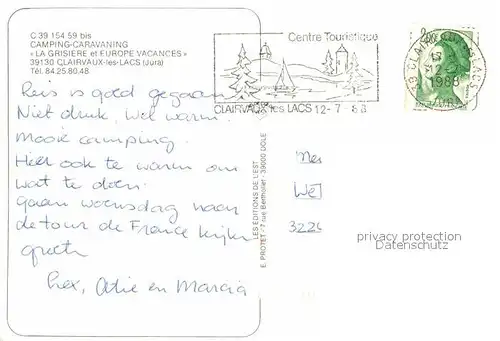 C 39 154 59 bis
CAMPING-CARAVANING
« LA GRISIERE et EUROPE VACANCES »
39130 CLAIRVAUX-les-LACS (Jura)
Tél. 84.25.80.48
Reis is goed gegaan
Niet druk, wel warm.
Mooie camping.
Heel ook te warm om
wat te doen.
Gaan woensdag naar
de tour de France kijken
groeten
liefs, Atie en Marcia
Centre Touristique
CLAIRVAUX les LACS 12-7-88
CLAIRVAUX LES LACS
1988
JURA
LES ÉDITIONS DE L'EST
E. PROTET - 7 rue Berthelet - 39000
Mev
We
322
privacy protection
Datenschutz